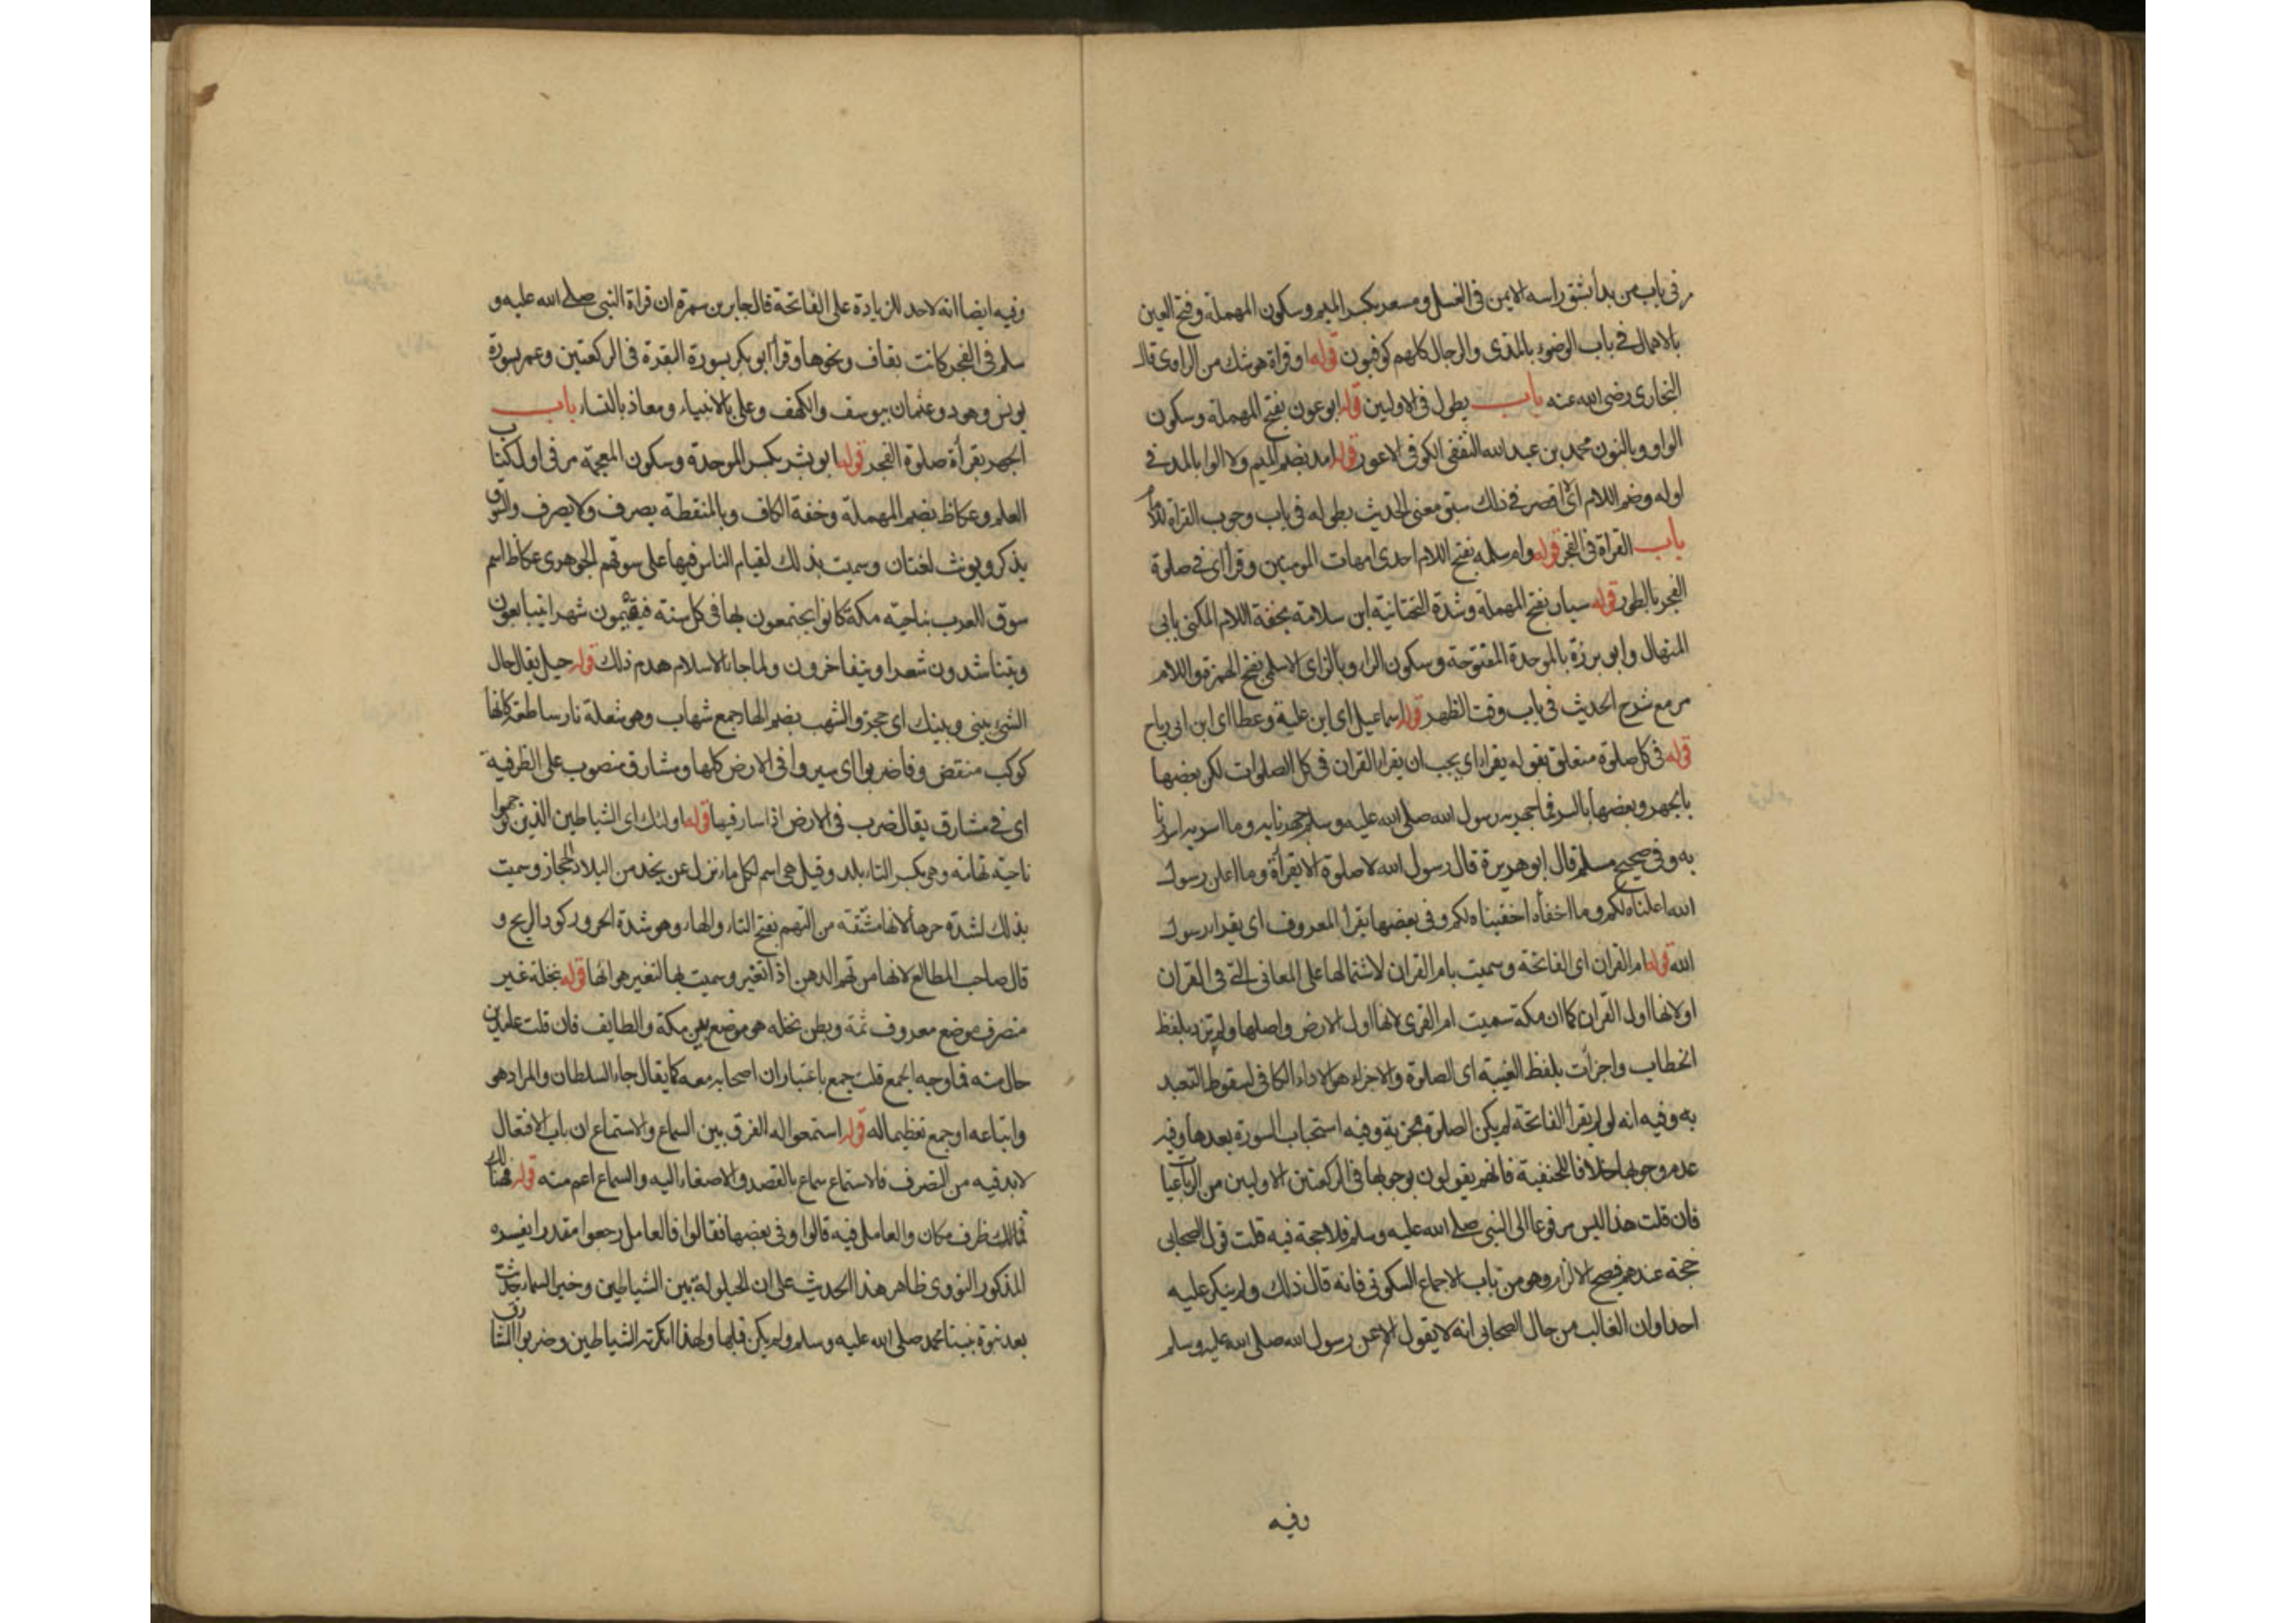 مر فى باب من بدأ بشق راسه الايمن فى الغسل ومسعر بكسر الميم وسكون المهملة وفتح العين
بالاهمال فے باب الوضوء بالمدى والرجال كلهم كوفيون قوله او قراة هو شك من الراوى قال
البخارى رضى الله عنه باب يطول فى الاوليين قوله ابو عون بفتح المهملة وسكون
الواو وبالنون محمد بن عبد الله الثقفى الكوفى الاعور قوله امد بضم الميم ولا الوا بالمد فے
اوله وضم اللام اى لا اقصر فے ذلك سبق معنى الحديث بطوله فى باب وجوب القراة للامام
باب القراة فى الفجر قوله وام سلمه بفتح اللام احدى امهات المومنين وقرأ اى فے صلوة
الفجر بالطور قوله سيار بفتح المهملة وشدة التحتانية ابن سلامة بخفة اللام المكنى بابى
المنهال وابو برزة بالموحدة المفتوحة وسكون الراء وبالزاى الاسلمى بفتح الهمزة واللام
مر مع شرح الحديث فى باب وقت الظهر قوله اسماعيل اى ابن علية وعطا اى ابن ابى رباح
قوله فى كل صلوة متعلق بقوله يقراء اى يجب ان يقراء القران فى كل الصلوات لكن بعضها
بالجهر وبعضها بالسر فما جهر به رسول الله صلى الله عليه وسلم جهرنا به وما اسر به اسررنا
به وفى صحيح مسلم قال ابو هريرة قال رسول الله لا صلوة الا بقرأة وما اعلن رسول
الله اعلناه لكم وما اخفاه اخفيناه لكم وفى بعضها يقرأ المعروف اى يقراء رسول
الله قوله ام القران اى الفاتحة وسميت بام القران لاشتمالها على المعانى التے فى القران
او لانها اول القران كما ان مكة سميت ام القرى لانها اول الارض واصلها ولم تزد بلفظ
الخطاب واجزأت بلفظ الغيبة اى الصلوة والاجزاء هو الاداء الكافى لسقوط التعبد
به وفيه انه لو لم يقرأ الفاتحة لم يكن الصلوة مجزية وفيه استحباب السورة بعدها وفيه
عدم وجوبها خلافا للحنفية فانهم يقولون بوجوبها فى الركعتين الاوليين من الرباعيات
فان قلت هذا ليس مرفوعا الى النبى صلے الله عليه وسلم فلا حجة فيه قلت قول الصحابى
حجة عندهم فصح الالزام وهو من باب الاجماع السكوتى فانه قال ذلك ولم ينكر عليه
احد او ان الغالب من حال الصحابى انه لا يقول الا عن رسول الله صلى الله عليه وسلم
وفيه
وفيه ايضا انه لا حد للزيادة على الفاتحة قال جابر بن سمرة ان قراة النبى صلے الله عليه و
سلم فى الفجر كانت بقاف ونحوها وقرأ ابو بكر بسورة البقرة فى الركعتين وعمر بسورة
يونس وهود وعثمان بيوسف والكهف وعلى بالانبياء ومعاذ بالنساء باب
الجهر بقرأة صلوة الفجر قوله ابو بشر بكسر الموحدة وسكون المعجمة مر فى اول كتاب
العلم وعكاظ بضم المهملة وخفة الكاف وبالمنقطة يصرف ولا يصرف والسوق
يذكر ويونث لغتان وسميت بذلك لقيام الناس فيها على سوقهم الجوهرى عكاظ اسم
سوق للعرب بناحية مكة كانوا يجتمعون بها فى كل سنة فيقيمون شهرا يتبايعون
ويتناشدون شعرا ويتفاخرون ولما جاء الاسلام هدم ذلك قوله حيل يقال حال
الشئ بينى وبينك اى حجز والشهب بضم الهاء جمع شهاب وهو شعلة نار ساطعة كانها
كوكب منقض وفاضربوا اى سيروا فى الارض كلها ومشارق منصوب على الظرفية
اى فے مشارق يقال ضرب فى الارض اذا سار فيها قوله اولئك اى الشياطين الذين توجهوا
ناحية تهامة وهى بكسر التاء بلد وقيل هى اسم لكل ما نزل عن نجد من البلاد الحجاز وسميت
بذلك لشدة حرها لانها مشتقة من التهم بفتح التاء والهاء وهو شدة الحر وركود الريح و
قال صاحب المطالع لانها من تهم الدهن اذا تغير وسميت بها لتغير هوائها قوله بنخلة غير
منصرف موضع معروف ثمة وبطن نخله هو موضع بين مكة والطايف فان قلت عامدين
حال منه فما وجه الجمع قلت جمع باعتبار ان اصحابه معه كما يقال جاء السلطان والمراد هو
واتباعه او جمع تعظيما له قوله استمعوا له الفرق بين السماع والاستماع ان باب الافتعال
لابد فيه من التصرف فالاستماع سماع بالقصد والاصغاء اليه والسماع اعم منه قوله فهنالك
فهنالك ظرف مكان والعامل فيه قالوا وفى بعضها فقالوا فالعامل رجعوا مقدرا يفسره
المذكور النووى ظاهر هذا الحديث على ان الحيلولة بين الشياطين وخبر السماء حدثت
بعد نبوة نبينا محمد صلى الله عليه وسلم ولم يكن قبلها ولهذا انكرته الشياطين وضربوا المشارق